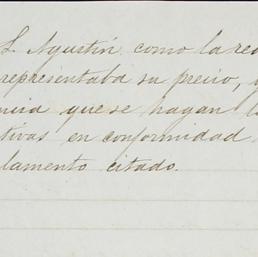 S. Agustín como la rec
representaba su precio, y
ncia que se hagan l
tivas en conformidad
lamento citado.